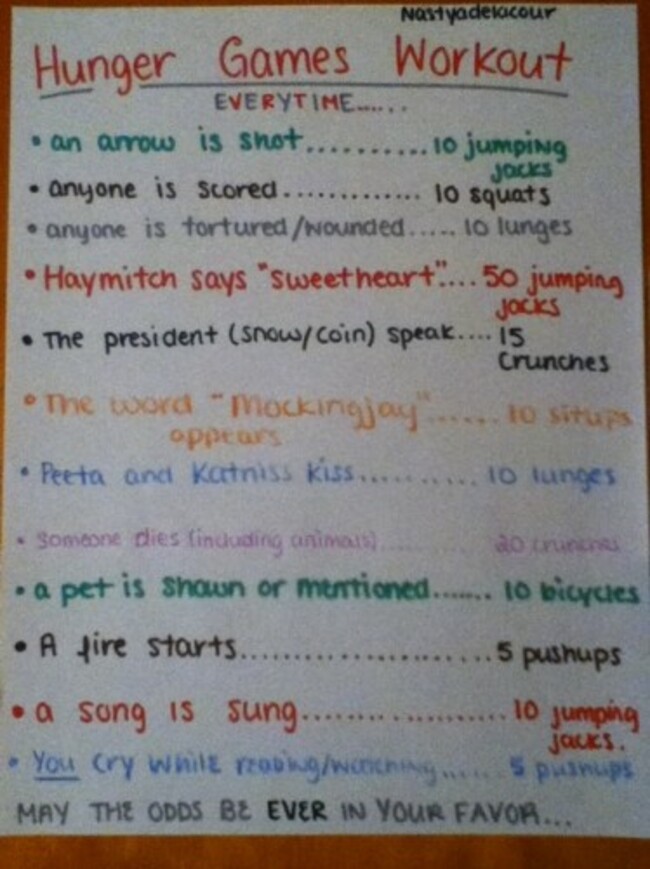 Nastyadelacour
Hunger Games Workout
EVERYTIME......
• an arrow is shot..........10 jumping
jacks
• anyone is scored............. 10 squats
• anyone is tortured/wounded..... 10 lunges
• Haymitch says "sweetheart".... 50 jumping
jacks
• The president (snow/coin) speak.... 15
Crunches
• The word "Mockingjay"...... 10 situps
appears
• Peeta and Katniss kiss........... 10 lunges
• Someone dies (including animals)........... 20 crunches
• a pet is shown or mentioned....... 10 bicycles
• A fire starts......................5 pushups
• a song is sung...................10 jumping
jacks.
• You cry while reading/watching...... 5 pushups
MAY THE ODDS BE EVER IN YOUR FAVOR...